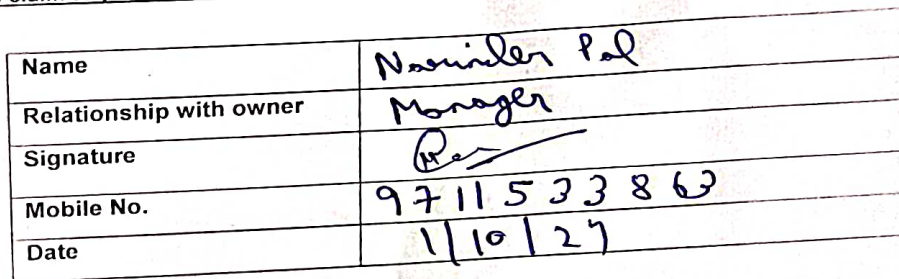 Name Narinder Pal
Relationship with owner Manager
Signature
Mobile No. 9711533863
Date 1/10/24